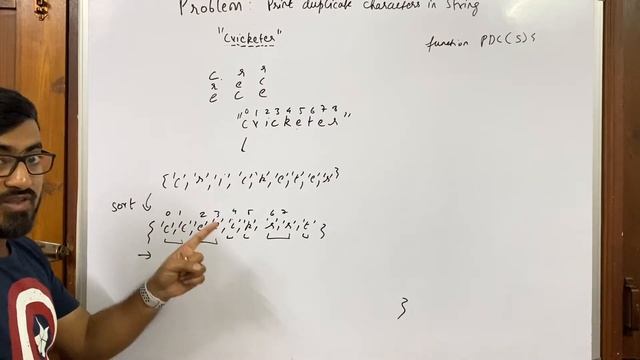 Problem: Print duplicate characters in String
"Cricketer"
function PDC(S){
c r r
r e c
e c e
0 1 2 3 4 5 6 7 8
"cricketer"
{'c','r','i','c','k','e','t','e','r'}
sort
0 1 2 3 4 5 6 7
{'c','c','e','i','k','r','r','t'}
}